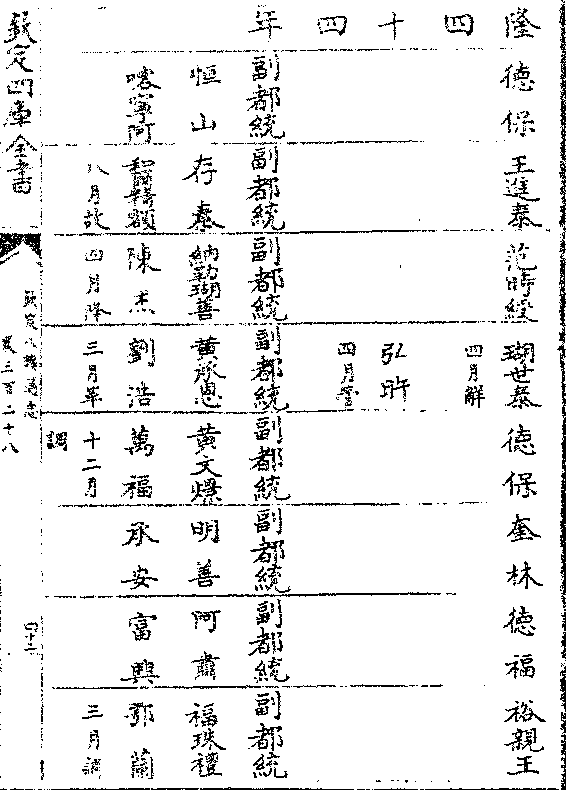 隆 德保 王進泰 范時綬 瑚世泰 德保 奎林 德福 裕親王
四 四月解
十 弘旿
四 四月署
年 副都統 副都統 副都統 副都統 副都統 副都統 副都統 副都統
恒山 存泰 納勒瑚善 黃承恩 黃文燦 明善 阿肅 福珠禮
喀寧阿 和爾精額 陳杰 劉浩 萬福 承安 富興 鄂蘭
八月故 四月降 三月革 十二月 三月調
調
欽定四庫全書
欽定八旗通志
卷三百二十八